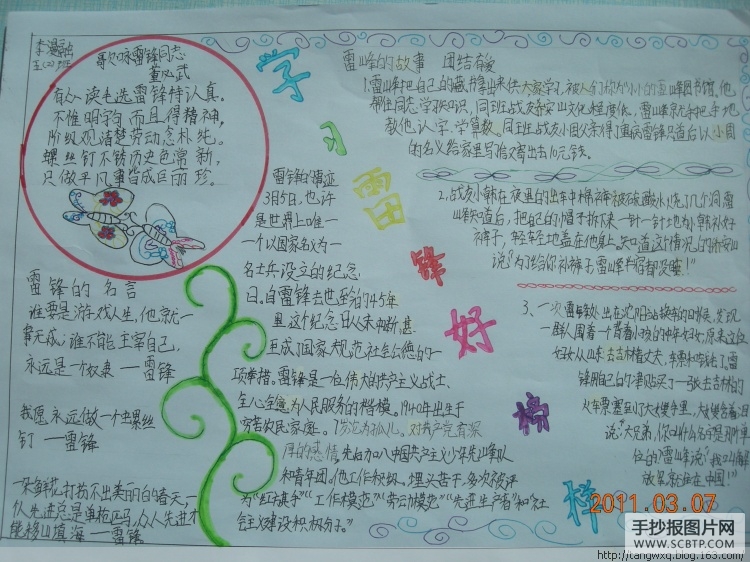 李漫
歌咏雷锋同志
董必武
有人读毛选雷锋特认真。
不惟明字句而且得精神,
阶级观清楚劳动态朴纯。
螺丝钉不锈历史色常新,
只做平凡事皆成巨丽珍。
雷锋的名言
谁要是游戏人生,他就一
事无成;谁不能主宰自己,
永远是一个奴隶 一雷锋
我愿永远做一个螺丝
钉 一雷锋
一朵鲜花打扮不出美丽的春天,一
个人先进总是单枪匹马,众人先进才
能移山填海 一雷锋
学习雷锋好榜样
雷锋的事迹
3月5日,也许
是世界上唯一
一个以国家名义为一
名士兵设立的纪念
日。自雷锋去世至今的45年
里这个纪念日从未中断,甚
至成了国家规范社会公德的一
项举措。雷锋是一位伟大的共产主义战士,
全心全意为人民服务的楷模。1940年出生于
穷苦农民家庭。
厚的感情。先后加入中国共产主义少年先锋队
和青年团。他工作积极。埋头苦干,多次被评
为“红旗手”“工作模范”“劳动模范”“先进生产者”和“社
会主义建设积极分子。”
雷峰的故事 团结友爱
1.雷峰把自己的藏书拿出来供大家学习,被人们称为“小小的雷峰图书馆”,他
帮助同志学习知识,同班战友乔安山文化程度低,雷峰就手把手地
教他认字、学算数。同班战友小周父亲得了重病雷锋知道后以小周
的名义给家里写信又寄出去10元钱。
2、战友小韩在夜里的出车中棉裤被硫酸水烧了几个洞雷
峰知道后,把自己的帽子拆下来一针一针地为小韩补好
裤子,轻轻地盖在他身上。知道这个情况的乔安山
说“为了给你补裤子雷峰半宿都没睡!”
3、一次雷锋外出在沈阳站换车的时候,发现
一群人围着一个背着小孩的中年妇女,原来这位
妇女从山东去吉林看丈夫,车票和钱丢了。雷
锋用自己的津贴买了一张去吉林的
火车票塞到了大嫂手里,大嫂含着泪
说“大兄弟,你叫什么名字是那个单
位的”雷峰说“我叫解
放军就住在中国!”
2011.03.07
手抄报图片网
WWW.SCBTP.COM
http://tangwxq.blog.163.com/